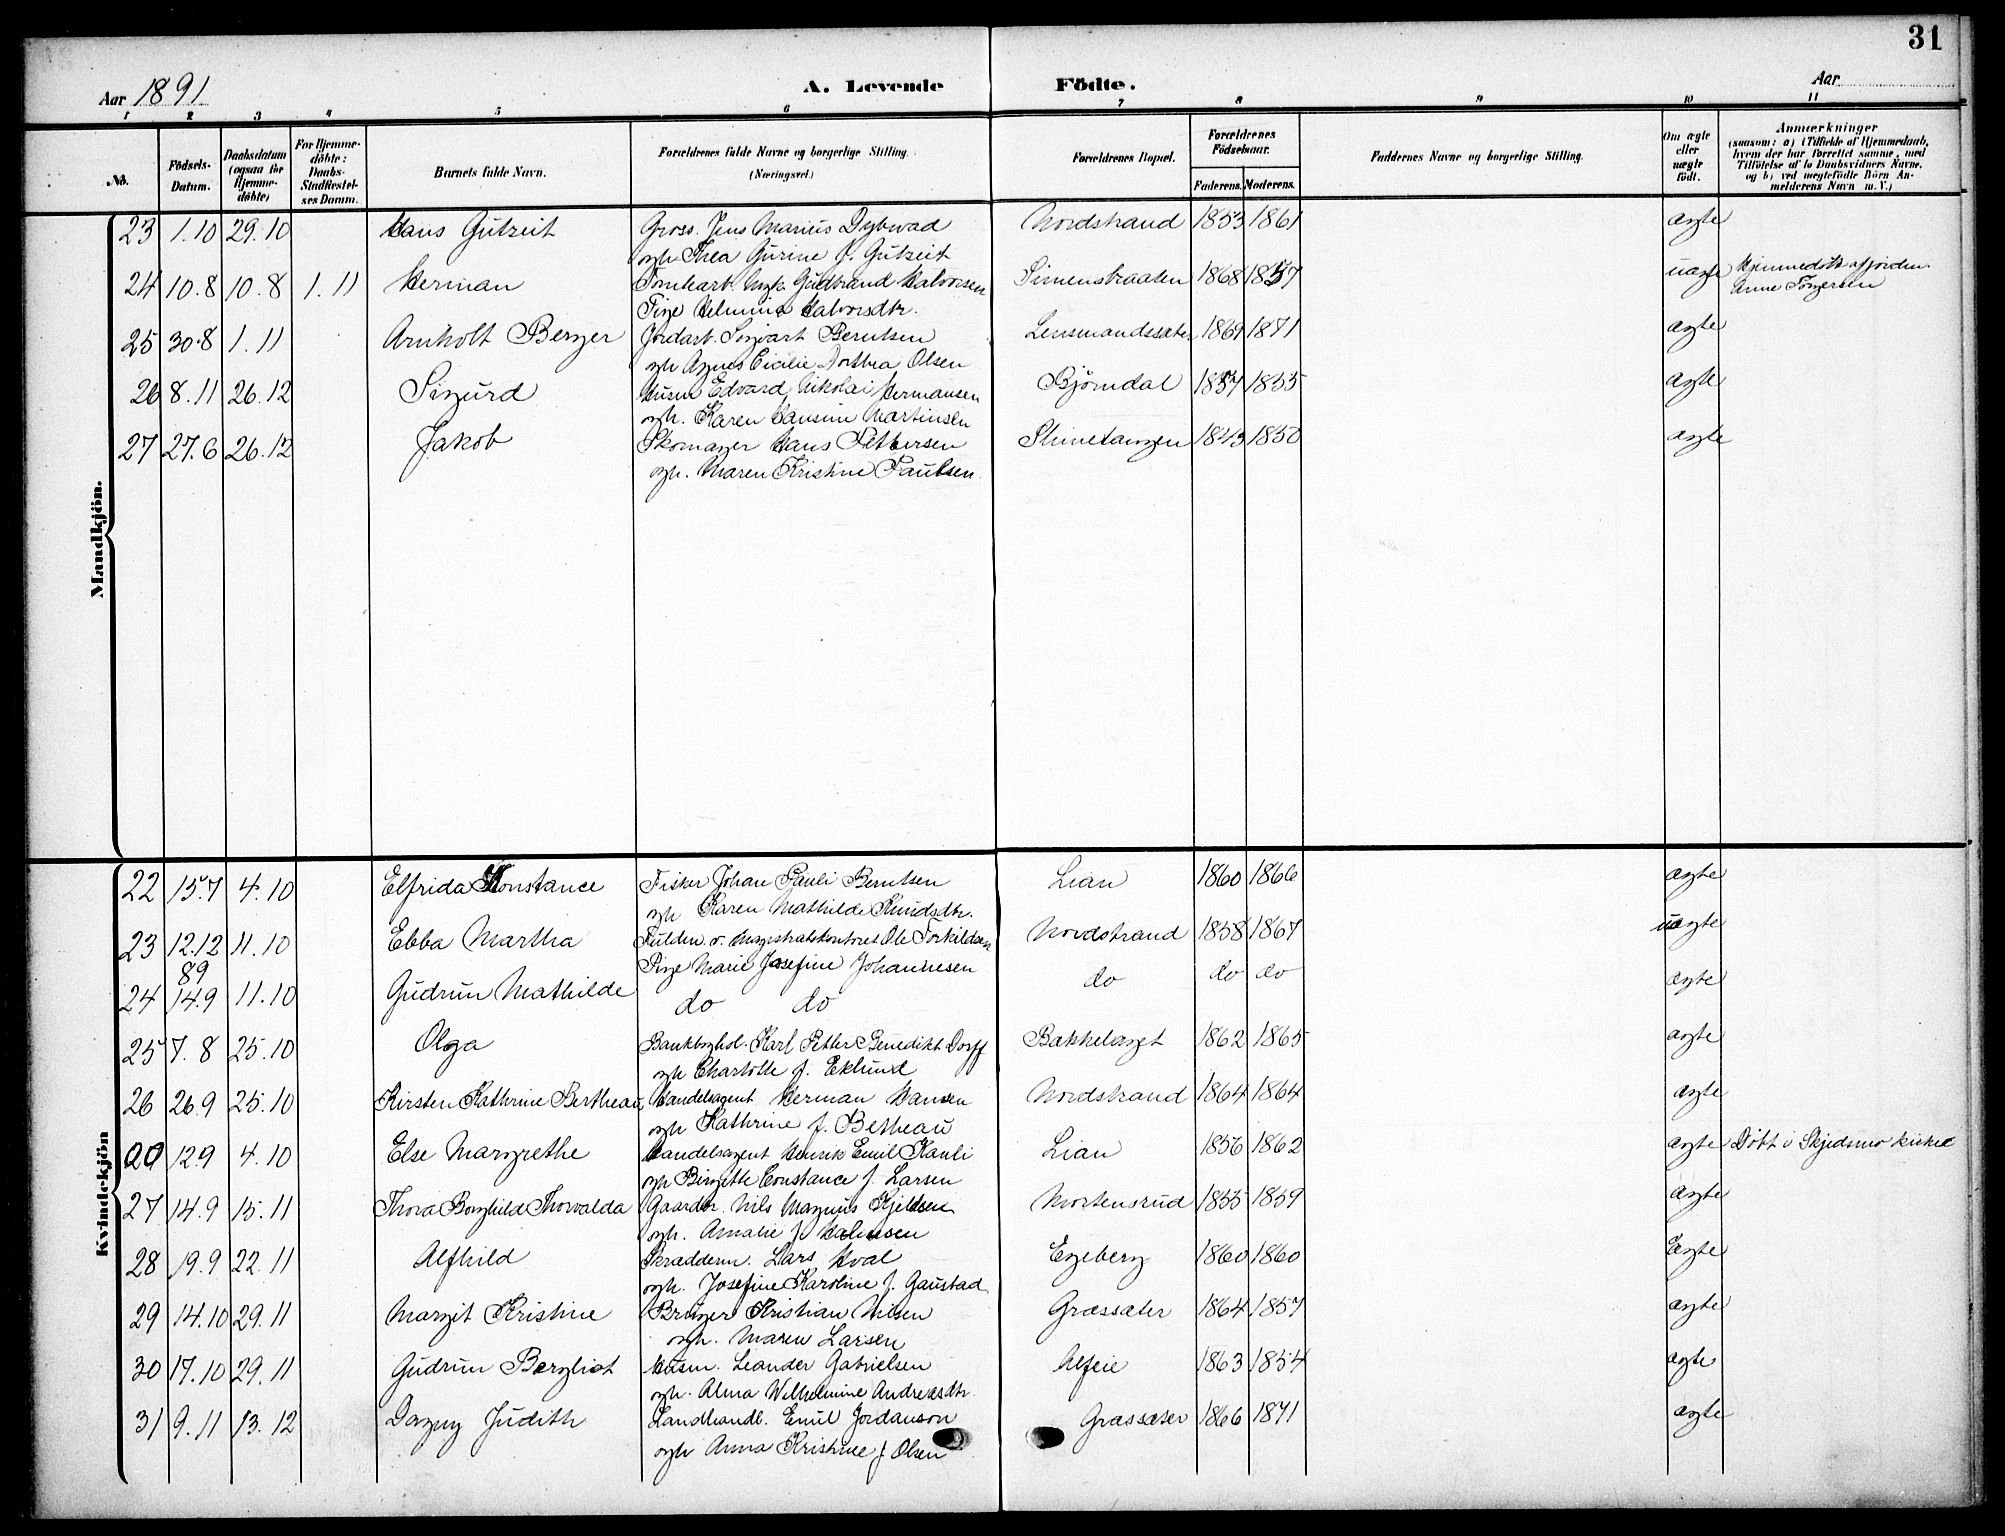 31
Aar 1891 A. Levende Födte. Aar
1 2 3 4 5 6 7 8 9 10 11
No. Födsels-Datum. Daabsdatum (ogsaa for Hjemme-döbte) For Hjemme-döbte: Daabs-Stadfæstel-ses Datum. Barnets fulde Navn. Forældrenes fulde Navne og borgerlige Stilling. (Næringsvei.) Forældrenes Bopæl. Forældrenes Födselsaar. Faderens. Moderens. Faddernes Navne og borgerlige Stilling. Om ægte eller uægte födt. Anmærkninger (saasom: a) i Tilfælde af Hjemmedaab, hvem der har forrettet samme, med Tilföielse af to Daabsvidners Navne, og b) ved uægtefödte Börn An-melderens Navn m. V.)
Mandkjön.
23 1.10 29.10 Hans Gutzeit Gross. Jens Marius Dybwad Nordstrand 1853 1861 ægte
og h. Thea Gurine f. Gutzeit
24 10.8 10.8 1.11 Herman Tomtearb. Ungk. Gudbrand Halvorsen Simenstraaten 1868 1857 uægte Hjemmedöbt af jordm.
Pige Helmina Halvorsdtr. Anne Torgersen
25 30.8 1.11 Arnholt Berger Jordarb. Sigvart Berntsen Lensmandssæter 1869 1871 ægte
og h. Agnes Cicilie Dorthea Olsen
26 8.11 26.12 Sigurd Husm Edvard Nikolai Hermansen Björndal 1857 1855 ægte
og h. Karen Hansine Martinsen
27 27.6 26.12 Jakob Skomager Hans Pettersen Slimetangen 1843 1850 ægte
og h. Maren Kristine Paulsen
Kvindekjön
22 15.7 4.10 Elfrida Konstance Fisker Johan Pauli Berntsen Lian 1860 1866 ægte
og h Karen Mathilde Knudsdtr.
23 12.12 11.10 Ebba Martha Fuldm. v. Magistratskontoret Ole Torkildsen Nordstrand 1858 1867 uægte
89 Pige Marie Josefine Johannesen
24 14.9 11.10 Gudrun Mathilde do do do do do ægte
25 7.8 25.10 Olga Bankboghol. Karl Petter Benedikt Dorff Bækkelaget 1862 1865 ægte
og h Charlotte f. Eklund
26 26.9 25.10 Kirsten Kathrine Bertheau Handelsagent Herman Hansen Nordstrand 1864 1864 ægte
og h Kathrine f. Betheau
20 12.9 4.10 Else Margrethe Handelsagent Henrik Emil Kauli Lian 1856 1862 ægte Döbt i Skjedsmo kirke
og h Birgitte Constance f. Larsen
27 14.9 15.11 Thora Borghild Thorvalda Gaardbr. Nils Magnus Kjeldsen Mortensrud 1855 1859 ægte
og h. Amalie f.
28 19.9 22.11 Alfhild Skrædderm. Lars Hval Egeberg 1860 1860 Ægte
og h. Josefine Karoline f. Gaustad
29 14.10 29.11 Margit Kristine Bruger Kristian Nilsen Græssæter 1864 1857 ægte
og h. Maren Larsen
30 17.10 29.11 Gudrun Bergliot Husm. Leander Gabrielsen Alfeie 1863 1854 ægte
og h. Alma Wilhelmine Andreasdtr.
31 9.11 13.12 Dagny Judith Landhandl. Emil Jordanson Græssæter 1866 1871 ægte
og h Anna Kristine f Olsen